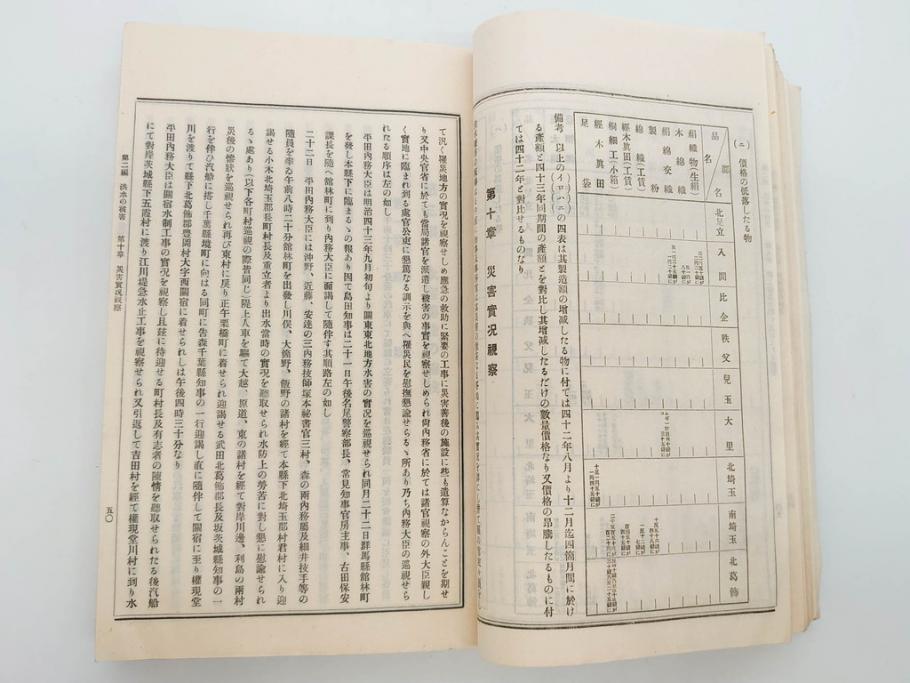 (ニ) 價格の低落したる物
品名
郡名
北足立
入間
比企
秩父
兒玉
大里
北埼玉
南埼玉
北葛飾
絹織物(生絹)
木綿織
絹綿交織
製粉
綿織(工賃)
經木眞田(工賃)
桐細工(小箱)
經木眞田
足袋
備考 以上の(イ)(ロ)(ハ)(ニ)の四表は其製造額の増減したる物に付ては四十二年八月より十二月迄四箇月間に於け
る產額と四十三年同期間の產額とを對比し其増減したるだけの數量價格なり又價格の昂騰したるものに付
ては四十二年と對比せるものなり
第十章 災害實況視察
て汎く罹災地方の實況を視察せしめ應急の救助に緊要の工事に災害善後の施設に些も遺算なからんことを期せ
り又中央官省に於ても當局諸官を派遣し被害の事實を視察せしめられ尙內務省に於ては諸官視察の外大臣親し
く實地に臨まれ到る處官公吏に懇篤なる訓示を與へ罹災民を慰撫懇諭せらるゝ所あり乃ち內務大臣の巡視せら
れたる順序は左の如し
平田內務大臣は明治四十三年九月初旬より關東東北地方水害の實況を巡視せられ同月二十二日群馬縣舘林町
を發し本縣下に臨まるゝの報あり因て島田知事は二十一日午後名尾警察部長、常見知事官房主事、古田保安
課長を隨へ舘林町に到り內務大臣に面謁して隨伴す其順路左の如し
二十二日 平田內務大臣には沖野、近藤、安達の三內務技師塚本祕書官三村、森の兩內務屬及細井技手等の
隨員を率ゐ午前八時二十分舘林町を出發し川俣、大箇野、飯野の諸村を經て本縣下北埼玉郡村君村に入り迎
謁せる小木北埼玉郡長町村長及重立者より出水當時の實況を聽取せられ水防上の勞苦に對し懇に慰諭せられ
るゝ處あり(以下各町村巡視の際皆同じ)隄上人車を驅て大越、原道、東の諸村を經て對岸川邊、利島の兩村
災後の慘狀を巡視せられ再び東村に戻り正午栗橋町に着せられ迎謁せる武田北葛飾郡長及坂茨城縣知事の一
行を伴ひ汽船に搭し千葉縣境町に向はる同町に告森千葉縣知事の一行迎謁し直に隨伴して關宿に至り權現堂
川を渡りて縣下北葛飾郡豐岡村大字西關宿に着せられしは午後四時三十分なり
平田內務大臣は關宿水制工事の實況を視察し且茲に待迎せる町村長及有志者の陳情を聽取せられたる後汽船
にて對岸茨城縣下五霞村に渡り江川堤急水止工事を視察せられ又引返して吉田村を經て權現堂川村に到り水
第二編 洪水の被害 第十章 災害實況視察
五〇